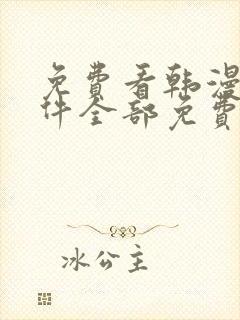 免费看韩漫
件全部免费
冰公主